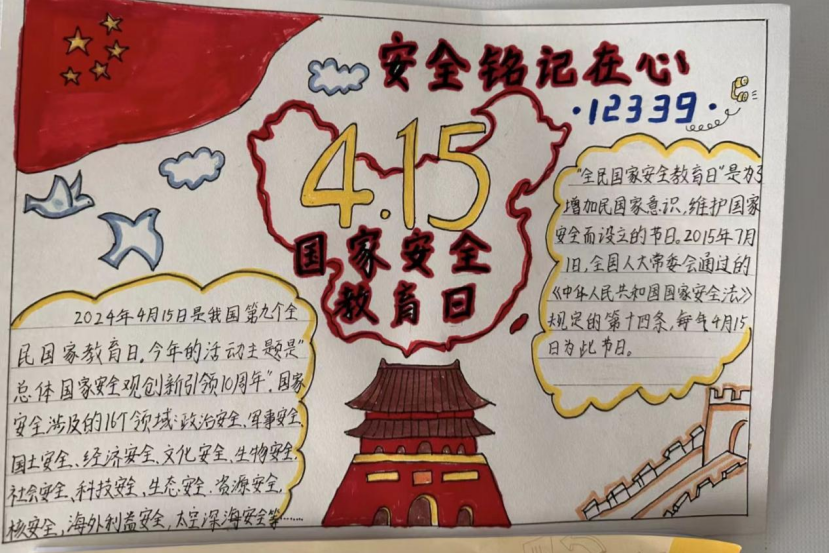 安全铭记在心
·12339·
4.15
国家安全
教育日
"全民国家安全教育日"是为了
增加民国家意识,维护国家
安全而设立的节日。2015年7月
1日,全国人大常委会通过的
《中华人民共和国国家安全法》
规定的第十四条,每年4月15
日为此节日。
2024年4月15日是我国第九个全
民国家教育日。今年的活动主题是"
总体国家安全观创新引领10周年"。国家
安全涉及的16个领域:政治安全、军事安全、
国土安全、经济安全、文化安全、生物安全、
社会安全、科技安全、生态安全、资源安全、
核安全、海外利益安全、太空深海安全等……